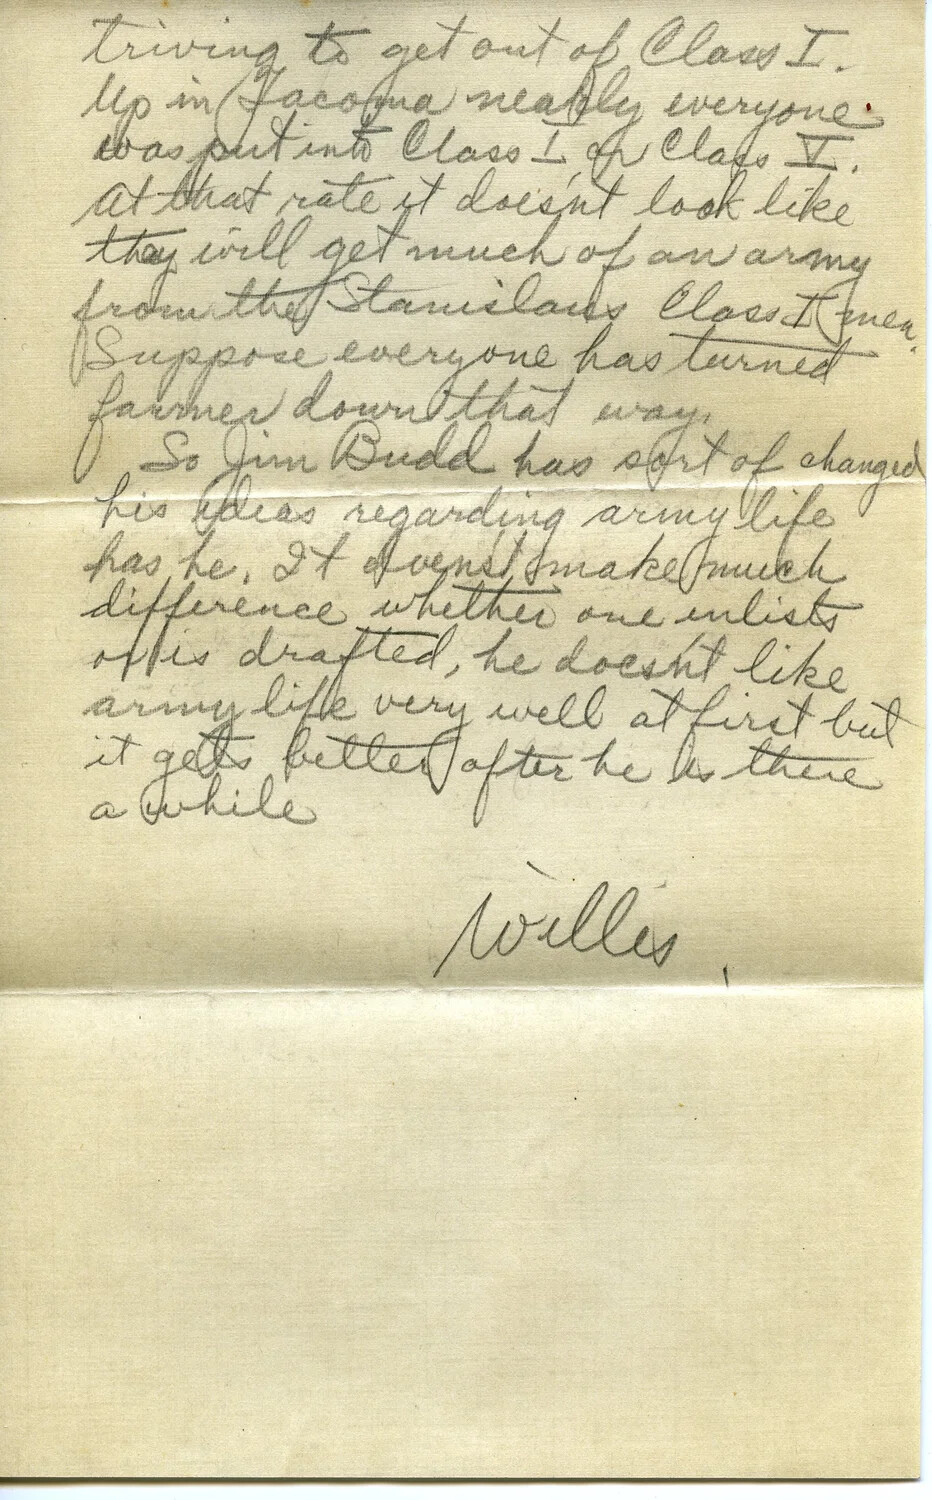 triving to get out of Class I.
Up in Tacoma nearly everyone
was put into Class I, or Class V.
At that rate it does'nt look like
they will get much of an army
from the Stanislaus Class I men.
Suppose everyone has turned
farmer down that way.
So Jim Budd has sort of changed
his ideas regarding army life
has he. It does'nt make much
difference whether one enlists
or is drafted, he does'nt like
army life very well at first but
it gets better after he is there
a while
Willis.